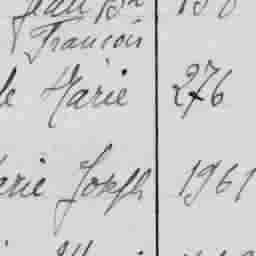 Jean Bte
François
le Marie 276
arie Joseph 1961